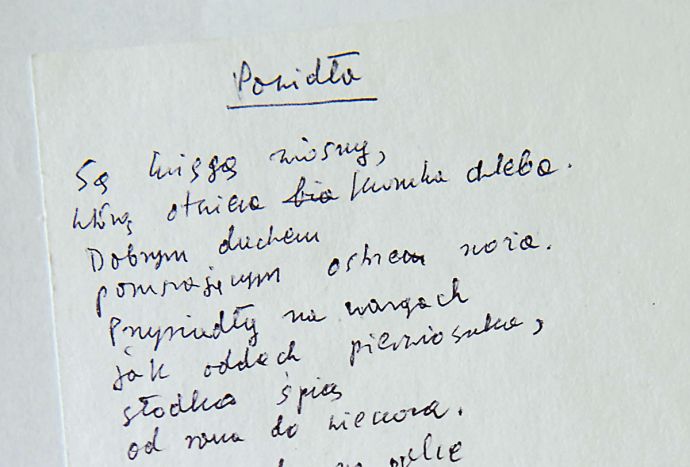 Powidła
Są księgą wiosny,
którą otwiera bia kromka chleba.
Dobrym duchem
poruszającym ostrzem noża.
Przysiadły na wargach
jak oddech pierwiosnka,
słodko śpią
od rana do wieczora.